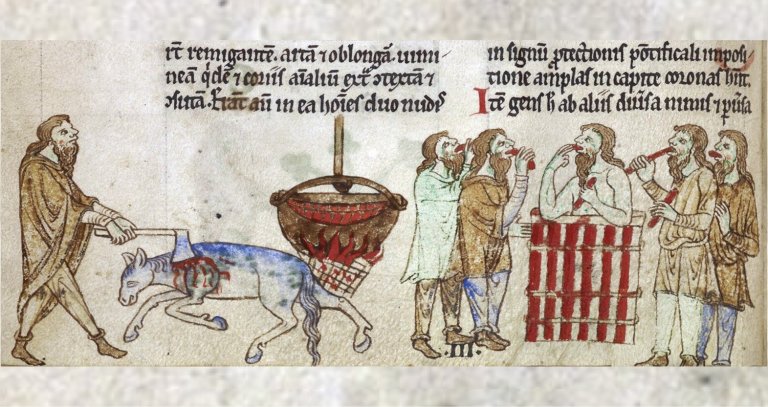 rt̄ remigantē. artā ⁊ oblongā. uimi-
neam qͥdē ⁊ coriis aīaliū ext͛ ↄtextā ⁊
ↄsutā. Erāt aū in ea hoīes duo nudi
in signū ꝓtectionis pōtificali imposi-
tione amplas in capite coronas hn̄t.
Itē gens h̄ ab aliis diūsa nimis ⁊ ꝑūsa
.III.